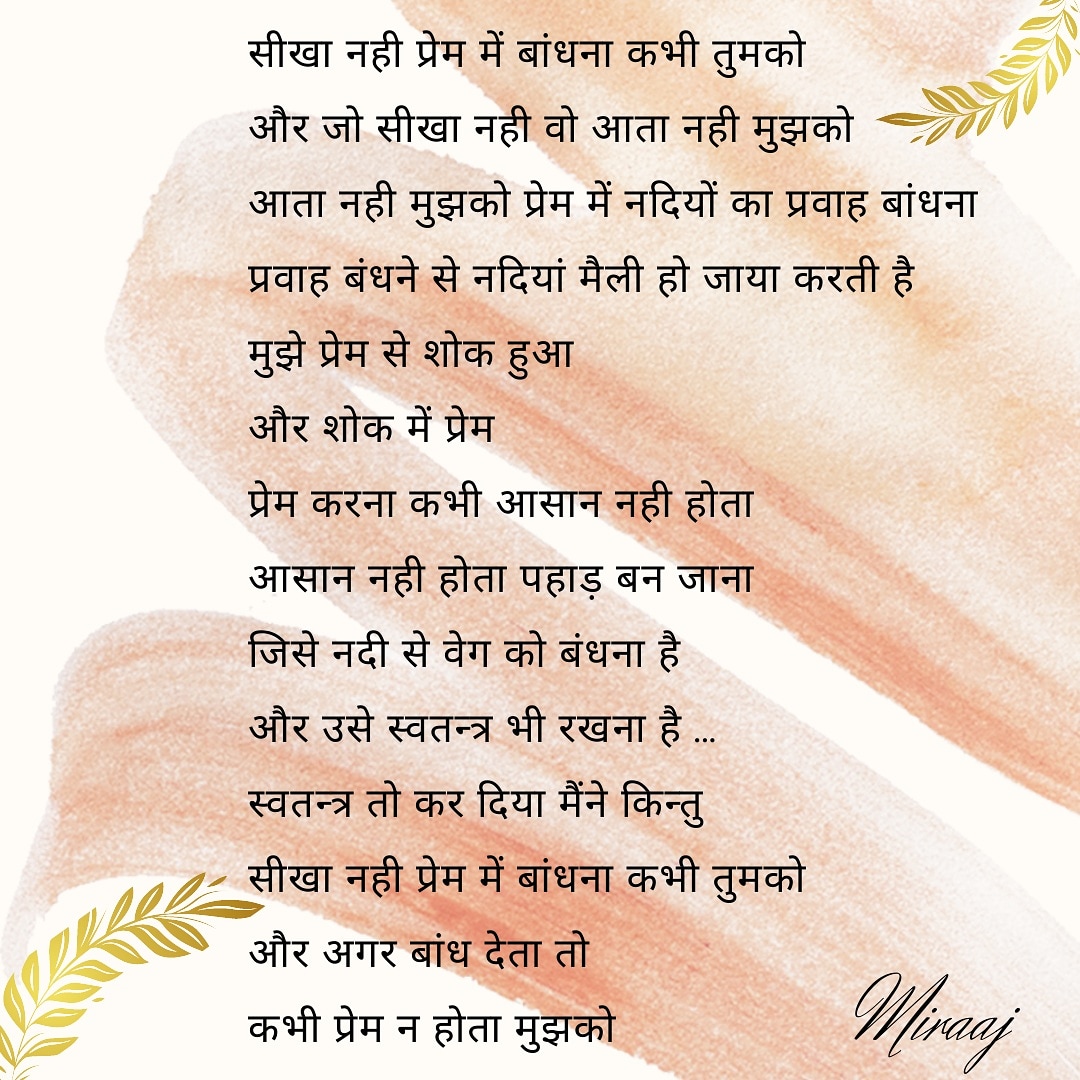 सीखा नही प्रेम में बांधना कभी तुमको
और जो सीखा नही वो आता नही मुझको
आता नही मुझको प्रेम में नदियों का प्रवाह बांधना
प्रवाह बंधने से नदियां मैली हो जाया करती है
मुझे प्रेम से शोक हुआ
और शोक में प्रेम
प्रेम करना कभी आसान नही होता
आसान नही होता पहाड़ बन जाना
जिसे नदी से वेग को बंधना है
और उसे स्वतन्त्र भी रखना है ...
स्वतन्त्र तो कर दिया मैंने किन्तु
सीखा नही प्रेम में बांधना कभी तुमको
और अगर बांध देता तो
कभी प्रेम न होता मुझको
Miraaj